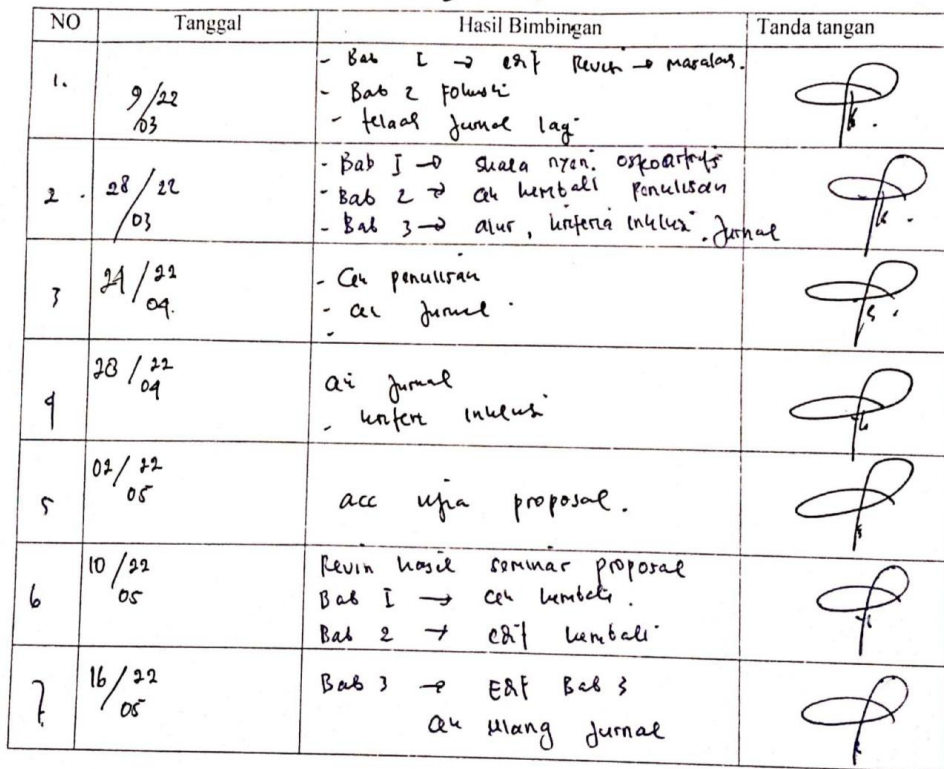 NO Tanggal Hasil Bimbingan Tanda tangan
1. 9/22 03
- Bab I → edit Revisi → masalah.
- Bab 2 
- telaah Jurnal lagi
2. 28/22 03
- Bab I → skala nyeri osteoartritis
- Bab 2 → cek kembali penulisan
- Bab 3 → alur, kriteria inklusi. Jurnal
3 24/22 04.
- Cek penulisan
- cek Jurnal
-
4 28/22 04
cek Jurnal
- kriteria inklusi
5 02/22 05
acc ujian proposal.
6 10/22 05
Revisi hasil seminar proposal
Bab I → cek kembali.
Bab 2 → edit kembali
7 16/22 05
Bab 3 → Edit Bab 3
cek ulang Jurnal